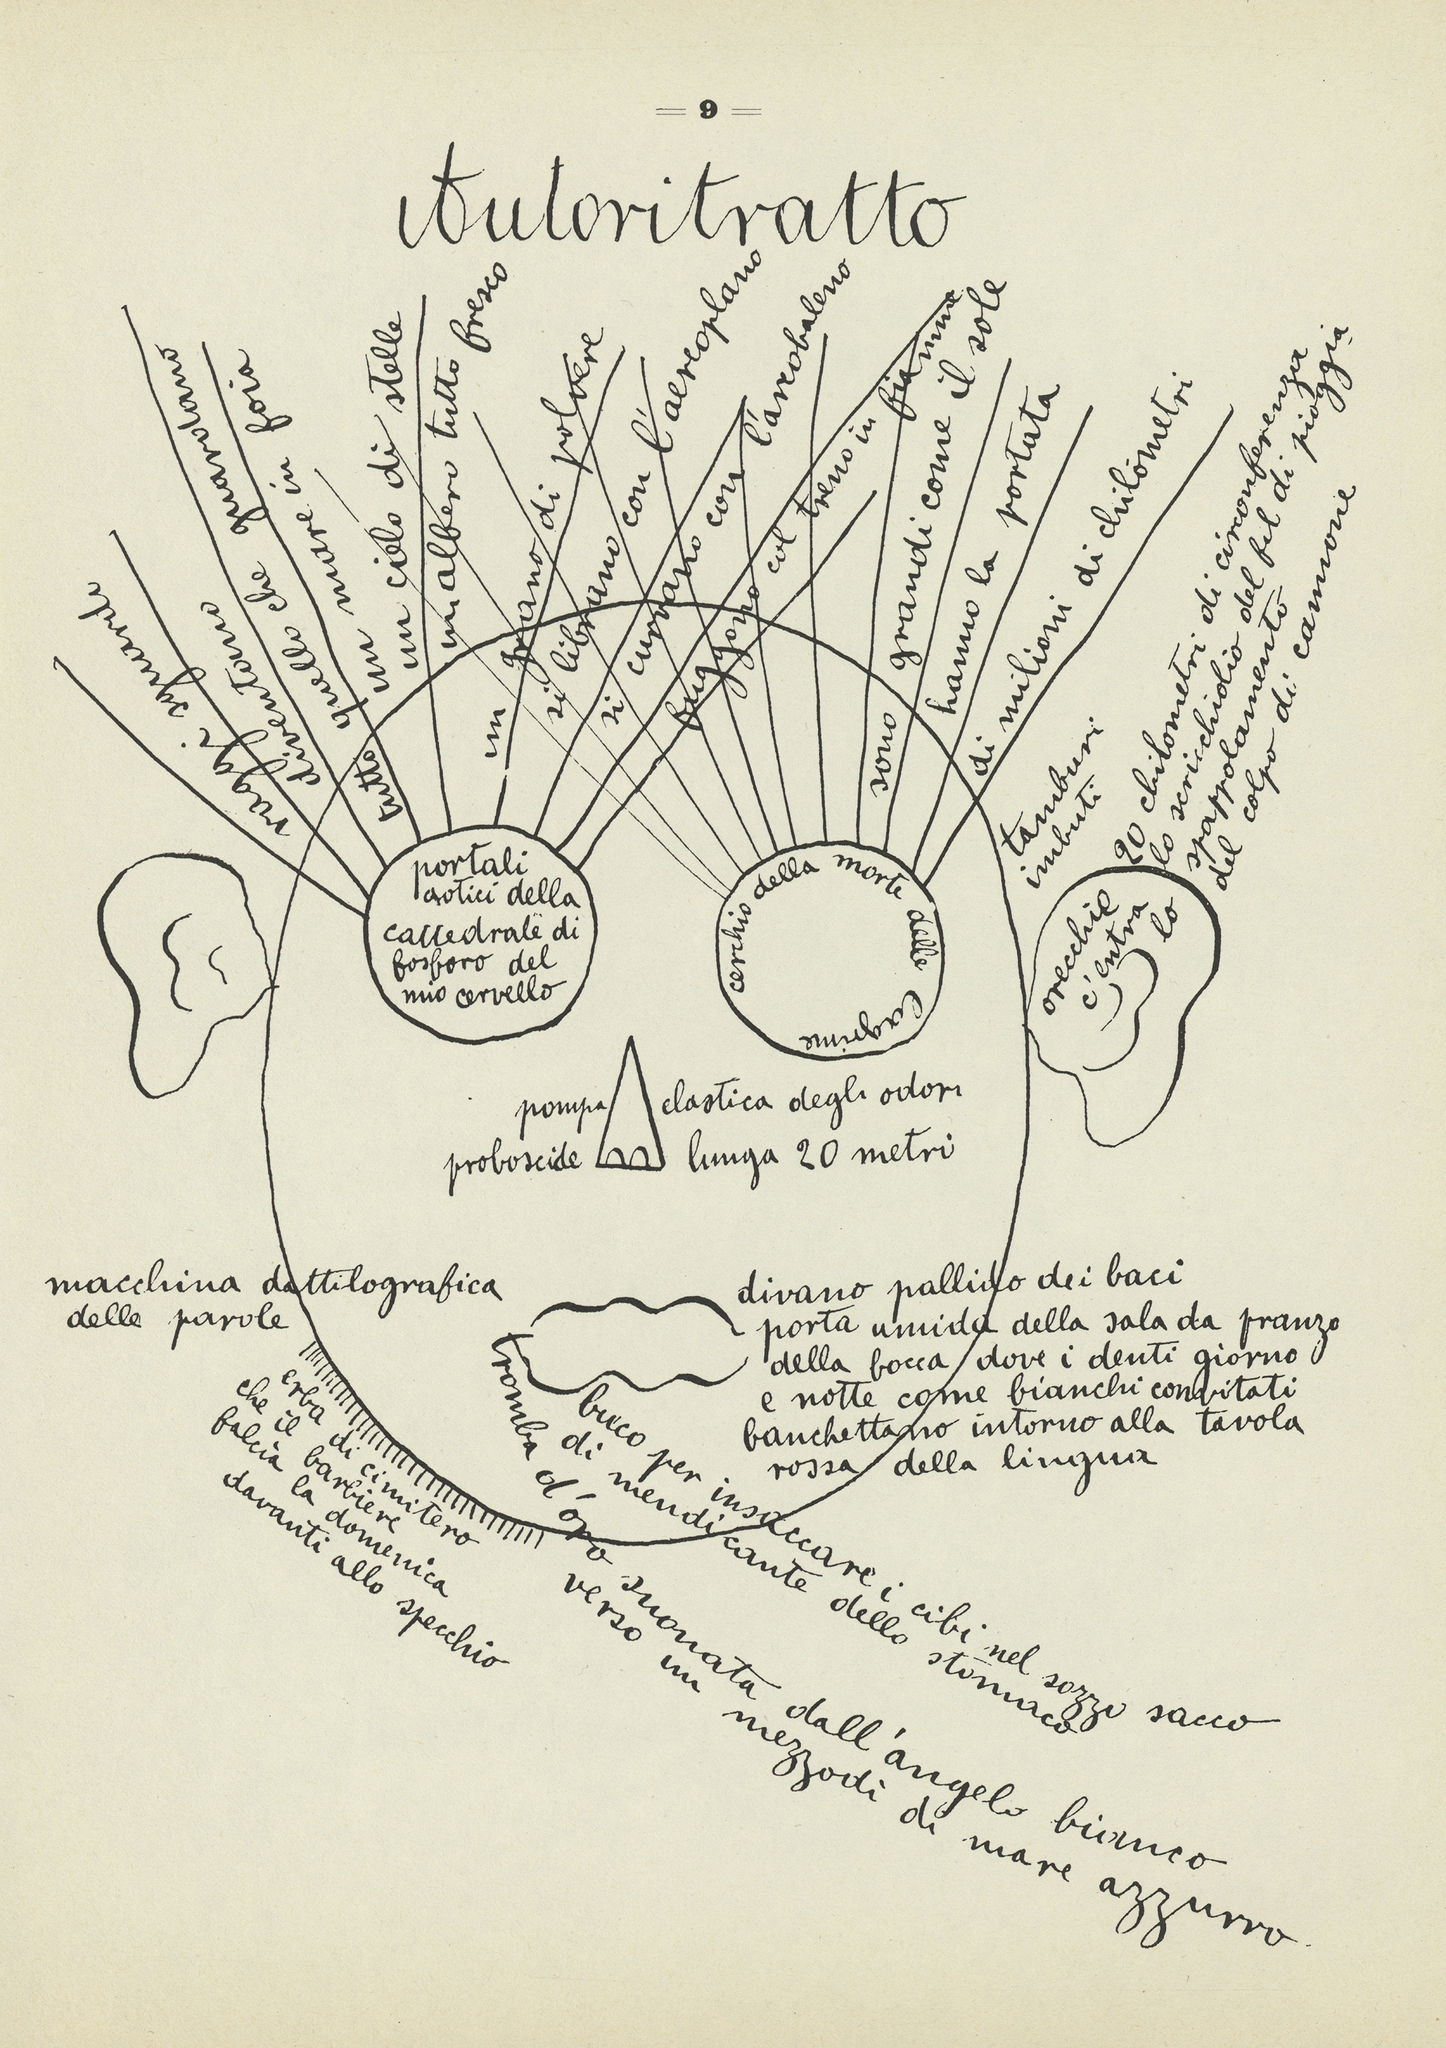 9
Autoritratto
raggi sguardi
diventano
tutto quello che guardano
un mare in foia
un cielo di stelle
un albero tutto fresco
un grano di polvere
si librano con l'aereoplano
si curvano con l'arcobaleno
fuggono col treno in fiamme
sono grandi come il sole
hanno la portata
di milioni di chilometri
tamburi
imbuti
20 chilometri di circonferenza
lo scricchiolio del fil di pioggia
spappolamento
del colpo di cannone
orecchie
c'entra
lo
portali
gotici della
cattedrale di
fosforo del
mio cervello
cerchio della morte delle lagrime
pompa elastica degli odori
proboscide lunga 20 metri
macchina dattilografica
delle parole
divano pallido dei baci
porta umida della sala da pranzo
della bocca dove i denti giorno
e notte come bianchi convitati
banchettano intorno alla tavola
rossa della lingua
erba di cimitero
che il barbiere
falcia la domenica
davanti allo specchio
buco per insaccare i cibi nel sozzo sacco
di mendicante dello stomaco
tromba d'oro suonata dall'angelo bianco
verso un mezzodì di mare azzurro.